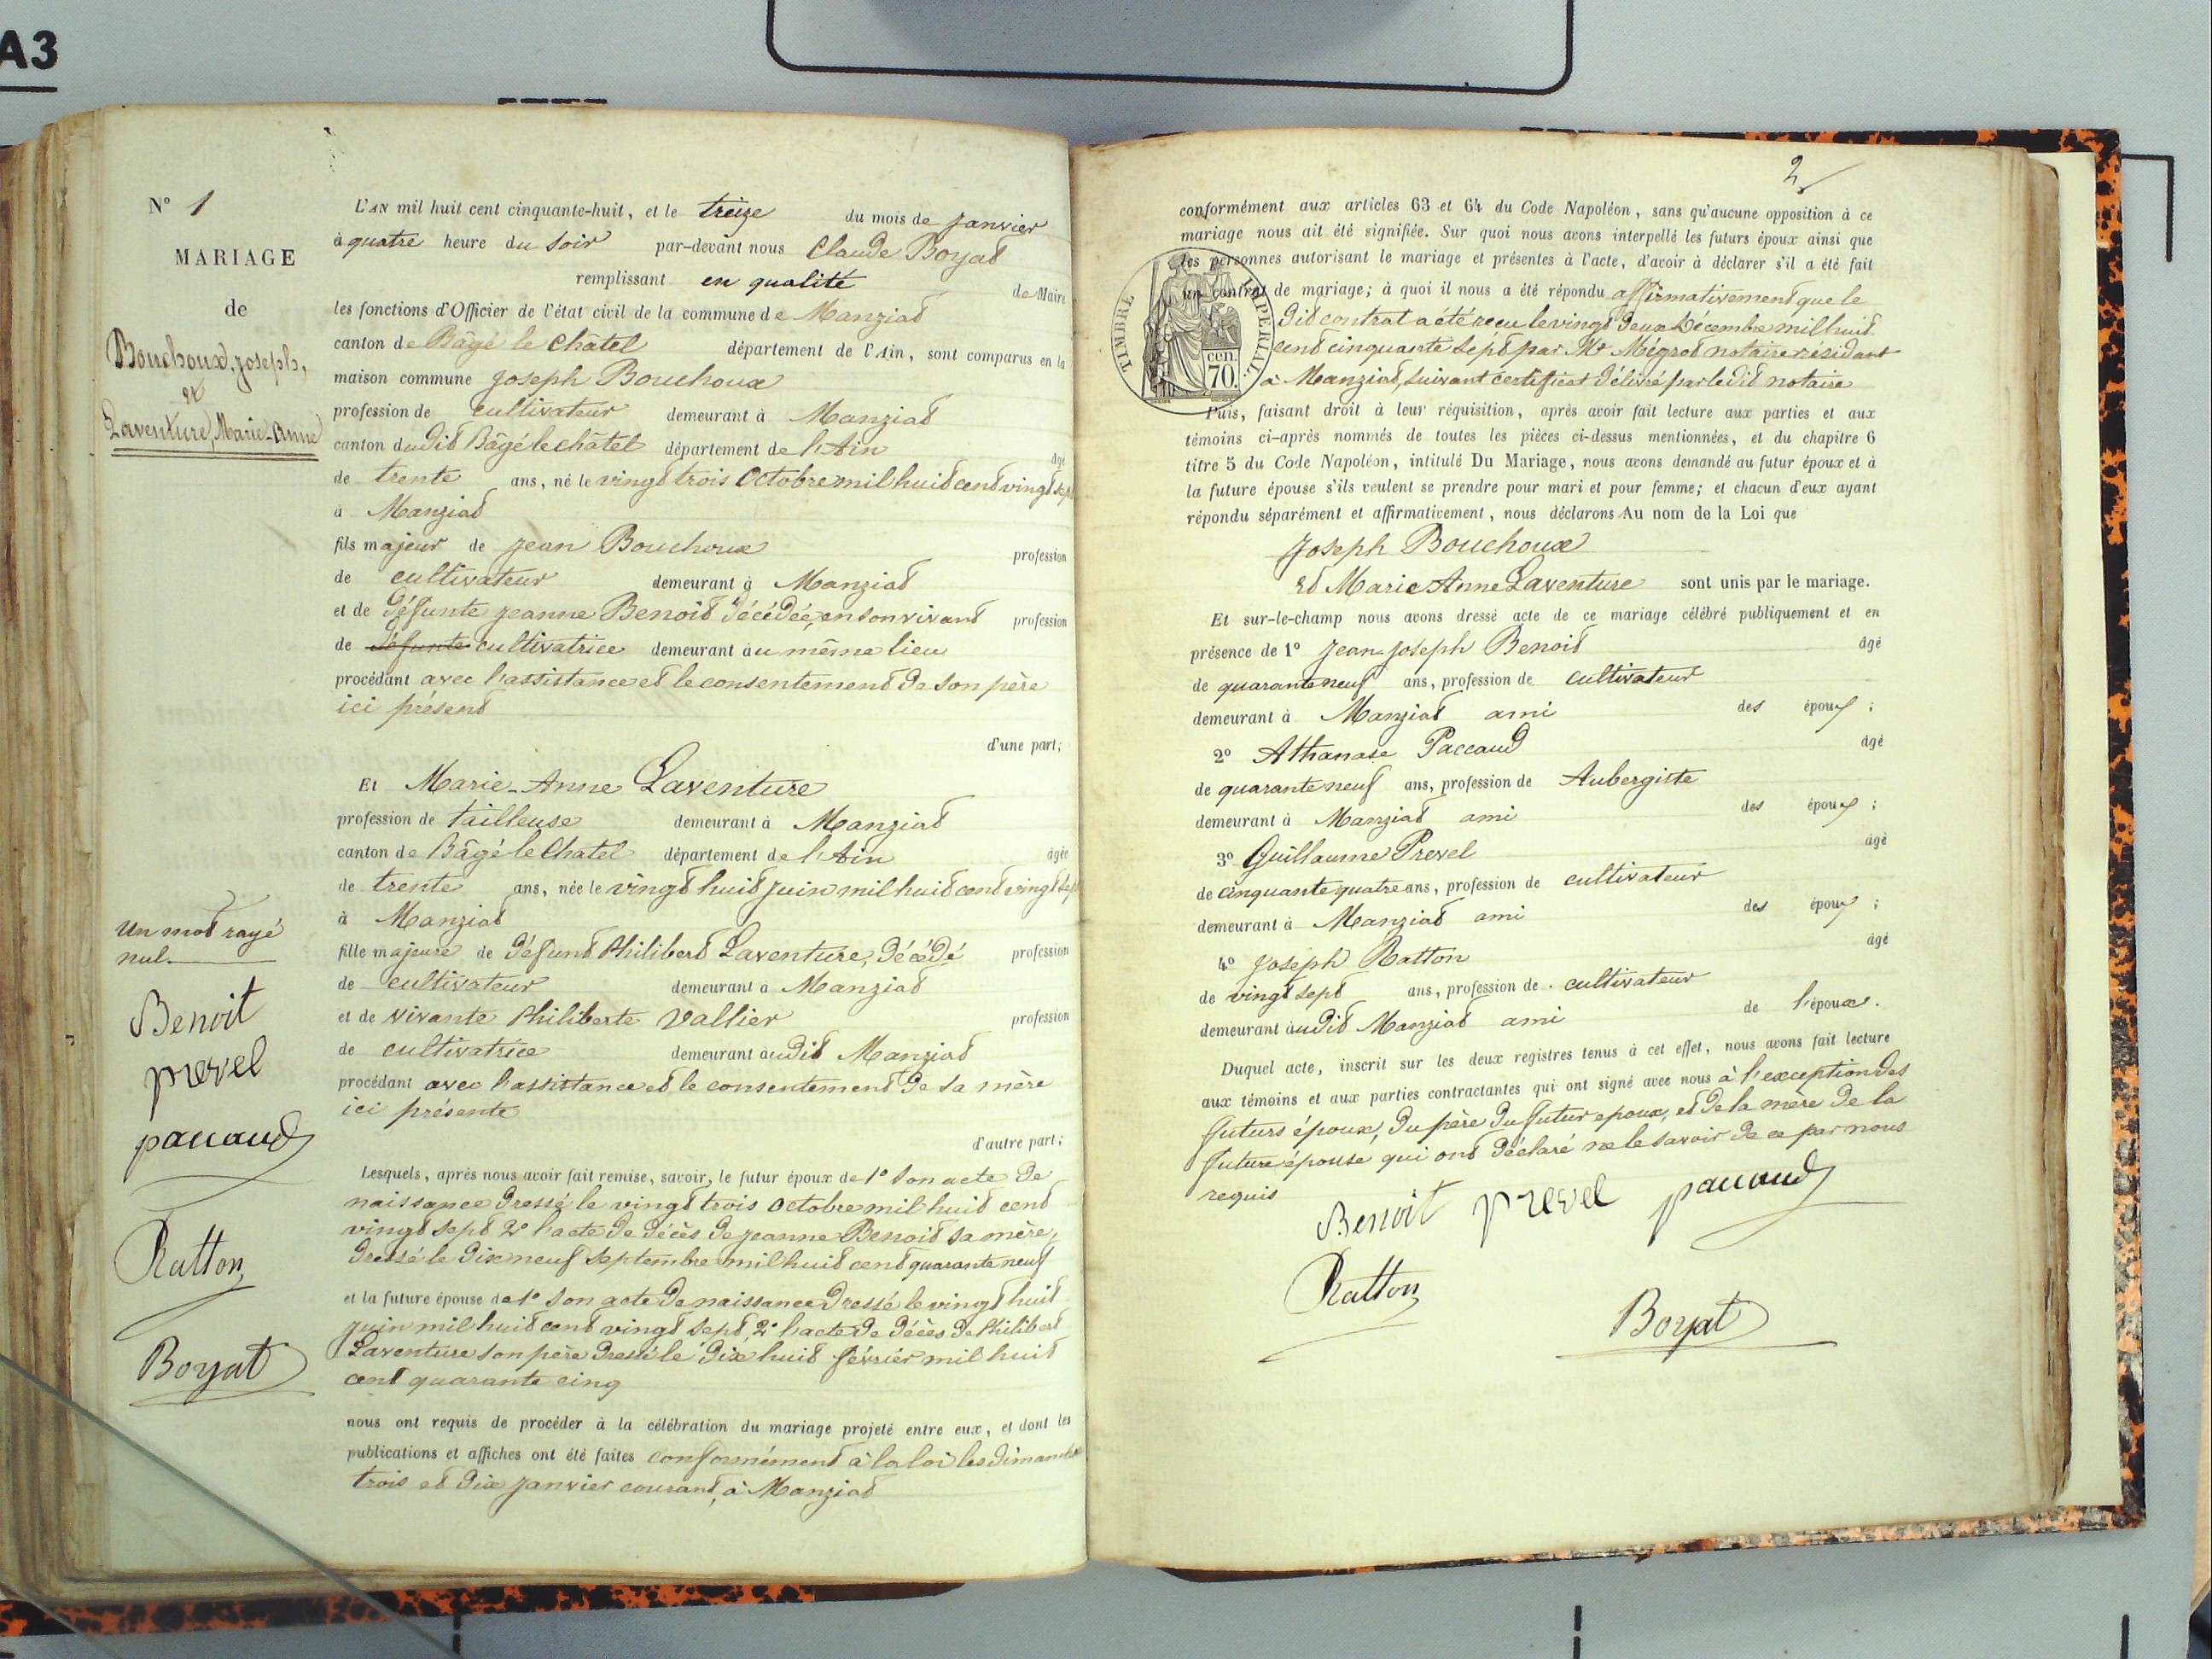 A3
N° 1
MARIAGE
de
Bouchoux, Joseph,
et
Laventure, Marie-Anne
Un mot rayé
nul.
Benoit
prevel
paccaud
Ratton
Boyat
L'AN mil huit cent cinquante-huit, et le treize du mois de Janvier
à quatre heure du soir par-devant nous Claude Boyat
remplissant en qualité de Maire
les fonctions d'Officier de l'état civil de la commune de Manziat
canton de Bâgé le Châtel département de l'Ain, sont comparus en la
maison commune Joseph Bouchoux
profession de cultivateur demeurant à Manziat
canton dudit Bâgé le châtel département de l'Ain âgé
de trente ans, né le vingt trois Octobre mil huit cent vingt sept
à Manziat
fils majeur de Jean Bouchoux profession
de cultivateur demeurant à Manziat
et de défunte Jeanne Benoit décédée, en son vivant profession
de défunte cultivatrice demeurant au même lieu
procédant avec l'assistance et le consentement de son père
ici présent
d'une part;
Et Marie-Anne Laventure
profession de tailleuse demeurant à Manziat
canton de Bâgé le Chatel département de l'Ain âgée
de trente ans, née le vingt huit Juin mil huit cent vingt sept
à Manziat
fille majeure de défunt Philibert Laventure, décédé profession
de cultivateur demeurant à Manziat
et de vivante Philiberte Vallier profession
de cultivatrice demeurant audit Manziat
procédant avec l'assistance et le consentement de sa mère
ici présente
d'autre part;
Lesquels, après nous avoir fait remise, savoir, le futur époux de 1° son acte de
naissance dressé le vingt trois Octobre mil huit cent
vingt sept 2° l'acte de décès de Jeanne Benoit sa mère,
dressé le dix neuf Septembre mil huit cent quarante neuf
et la future épouse de 1° son acte de naissance dressé le vingt huit
Juin mil huit cent vingt sept, 2° l'acte de décès de Philibert
Laventure son père dressé le dix huit février mil huit
cent quarante cinq
nous ont requis de procéder à la célébration du mariage projeté entre eux, et dont les
publications et affiches ont été faites conformément à la loi les dimanches
trois et dix Janvier courant, à Manziat
2
conformément aux articles 63 et 64 du Code Napoléon, sans qu'aucune opposition à ce
mariage nous ait été signifiée. Sur quoi nous avons interpellé les futurs époux ainsi que
les personnes autorisant le mariage et présentes à l'acte, d'avoir à déclarer s'il a été fait
un contrat de mariage; à quoi il nous a été répondu affirmativement que le
dit contrat a été reçu le vingt deux Décembre mil huit
cent cinquante sept par Me Mégrot notaire résidant
à Manziat, suivant certificat délivré par ledit notaire
TIMBRE IMPERIAL
cen.
70.
Puis, faisant droit à leur réquisition, après avoir fait lecture aux parties et aux
témoins ci-après nommés de toutes les pièces ci-dessus mentionnées, et du chapitre 6
titre 5 du Code Napoléon, intitulé Du Mariage, nous avons demandé au futur époux et à
la future épouse s'ils veulent se prendre pour mari et pour femme; et chacun d'eux ayant
répondu séparément et affirmativement, nous déclarons Au nom de la Loi que
Joseph Bouchoux
et Marie Anne Laventure sont unis par le mariage.
Et sur-le-champ nous avons dressé acte de ce mariage célébré publiquement et en
présence de 1° Jean-Joseph Benoit âgé
de quarante neuf ans, profession de cultivateur
demeurant à Manziat ami des époux ;
2° Athanase Paccaud âgé
de quarante neuf ans, profession de Aubergiste
demeurant à Manziat ami des époux ;
3° Guillaume Prevel âgé
de cinquante quatre ans, profession de cultivateur
demeurant à Manziat ami des époux ;
4° Joseph Ratton âgé
de vingt sept ans, profession de cultivateur
demeurant audit Manziat ami de l'époux.
Duquel acte, inscrit sur les deux registres tenus à cet effet, nous avons fait lecture
aux témoins et aux parties contractantes qui ont signé avec nous à l'exception des
futurs époux, du père du futur époux, et de la mère de la
future épouse qui ont déclaré ne le savoir de ce par nous
requis
Benoit prevel paccaud
Ratton
Boyat